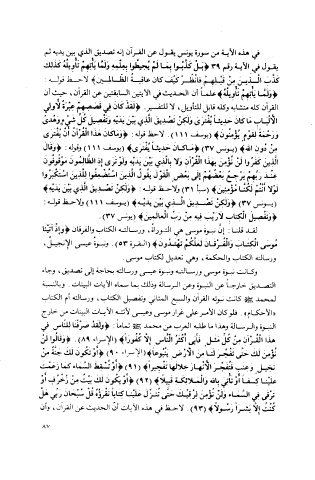 في هذه الآية من سورة يونس يقول عن القرآن إنه تصديق الذي بين يديه ثم
يقول في الآية رقم ٣٩ ﴿بَلْ كَذَّبُوا بِمَا لَمْ يُحِيطُوا بِعِلْمِهِ وَلَمَّا يَأْتِهِمْ تَأْوِيلُهُ كَذَلِكَ
كَذَّبَ الَّذِينَ مِنْ قَبْلِهِمْ فَانْظُرْ كَيْفَ كَانَ عَاقِبَةُ الظَّالِمِينَ﴾ لاحظ قوله:
﴿وَلَمَّا يَأْتِهِمْ تَأْوِيلُهُ﴾ علماً أن الحديث في الآيتين السابقتين عن القرآن، حيث أن
القرآن كله متشابه وكله قابل للتأويل، لا للتفسير. ﴿لَقَدْ كَانَ فِي قَصَصِهِمْ عِبْرَةٌ لِأُولِي
الْأَلْبَابِ مَا كَانَ حَدِيثاً يُفْتَرَى وَلَكِنْ تَصْدِيقَ الَّذِي بَيْنَ يَدَيْهِ وَتَفْصِيلَ كُلِّ شَيْءٍ وَهُدًى
وَرَحْمَةً لِقَوْمٍ يُؤْمِنُونَ﴾ (يوسف ١١١). لاحظ قوله: ﴿وَمَا كَانَ هَذَا الْقُرْآنُ أَنْ يُفْتَرَى
مِنْ دُونِ اللهِ﴾ (يونس ٣٧) ﴿مَا كَانَ حَدِيثاً يُفْتَرَى﴾ (يوسف ١١١) وقوله: ﴿وَقَالَ
الَّذِينَ كَفَرُوا لَنْ نُؤْمِنَ بِهَذَا الْقُرْآنِ وَلَا بِالَّذِي بَيْنَ يَدَيْهِ وَلَوْ تَرَى إِذِ الظَّالِمُونَ مَوْقُوفُونَ
عِنْدَ رَبِّهِمْ يَرْجِعُ بَعْضُهُمْ إِلَى بَعْضٍ الْقَوْلَ يَقُولُ الَّذِينَ اسْتُضْعِفُوا لِلَّذِينَ اسْتَكْبَرُوا
لَوْلَا أَنْتُمْ لَكُنَّا مُؤْمِنِينَ﴾ (سبأ ٣١) ولاحظ قوله: ﴿وَلَكِنْ تَصْدِيقَ الَّذِي بَيْنَ يَدَيْهِ﴾
(يونس ٣٧) ﴿وَلَكِنْ تَصْدِيقَ الَّذِي بَيْنَ يَدَيْهِ﴾ (يوسف ١١١) ولاحظ قوله:
﴿وَتَفْصِيلَ الْكِتَابِ لَا رَيْبَ فِيهِ مِنْ رَبِّ الْعَالَمِينَ﴾ (يونس ٣٧).
لقد قلنا: إن نبوة موسى هي التوراة، ورسالته الكتاب والفرقان ﴿وَإِذْ آتَيْنَا
مُوسَى الْكِتَابَ وَالْفُرْقَانَ لَعَلَّكُمْ تَهْتَدُونَ﴾ (البقرة ٥٣). ونبوة عيسى الإنجيل،
ورسالته الكتاب والحكمة، وهي تعديل لكتاب موسى.
وكانت نبوة موسى ورسالته ونبوة عيسى ورسالته بحاجة إلى تصديق، وجاء
التصديق خارجاً عن النبوة وعن الرسالة وذلك بما سماه الآيات البينات. وبالنسبة
لمحمد ﷺ كانت نبوته القرآن والسبع المثاني وتفصيل الكتاب، ورسالته أم الكتاب
«الأحكام». فلو كان الأمر على غرار موسى وعيسى لأتت الآيات البينات من خارج
النبوة والرسالة وهذا ما طلبه العرب من محمد ﷺ تماماً: ﴿وَلَقَدْ صَرَّفْنَا لِلنَّاسِ فِي
هَذَا الْقُرْآنِ مِنْ كُلِّ مَثَلٍ فَأَبَى أَكْثَرُ النَّاسِ إِلَّا كُفُوراً﴾ (الإسراء ٨٩). ﴿وَقَالُوا لَنْ
نُؤْمِنَ لَكَ حَتَّى تَفْجُرَ لَنَا مِنَ الْأَرْضِ يَنْبُوعاً﴾ (الإسراء ٩٠) ﴿أَوْ تَكُونَ لَكَ جَنَّةٌ مِنْ
نَخِيلٍ وَعِنَبٍ فَتُفَجِّرَ الْأَنْهَارَ خِلَالَهَا تَفْجِيراً﴾ (٩١) ﴿أَوْ تُسْقِطَ السَّمَاءَ كَمَا زَعَمْتَ
عَلَيْنَا كِسَفاً أَوْ تَأْتِيَ بِاللهِ وَالْمَلَائِكَةِ قَبِيلاً﴾ (٩٢) ﴿أَوْ يَكُونَ لَكَ بَيْتٌ مِنْ زُخْرُفٍ أَوْ
تَرْقَى فِي السَّمَاءِ وَلَنْ نُؤْمِنَ لِرُقِيِّكَ حَتَّى تُنَزِّلَ عَلَيْنَا كِتَاباً نَقْرَؤُهُ قُلْ سُبْحَانَ رَبِّي هَلْ
كُنْتُ إِلَّا بَشَراً رَسُولاً﴾ (٩٣). لاحظ في هذه الآيات أن الحديث عن القرآن، وأن
٨٧